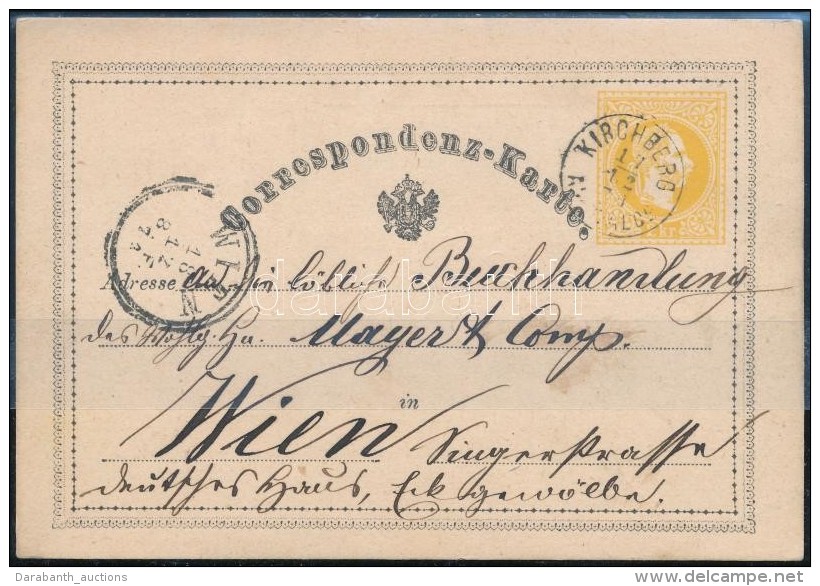 Correspondenz-Karte.
KIRCHBERG
WIEN
Adresse An die löbliche Buchhandlung
des Wohlg. Hn. Mayer & Comp.
in
Wien Singerstrasse
deutsches Haus, Eck gewölbe.
databanth
Darabanth_auctions
delcampe.net